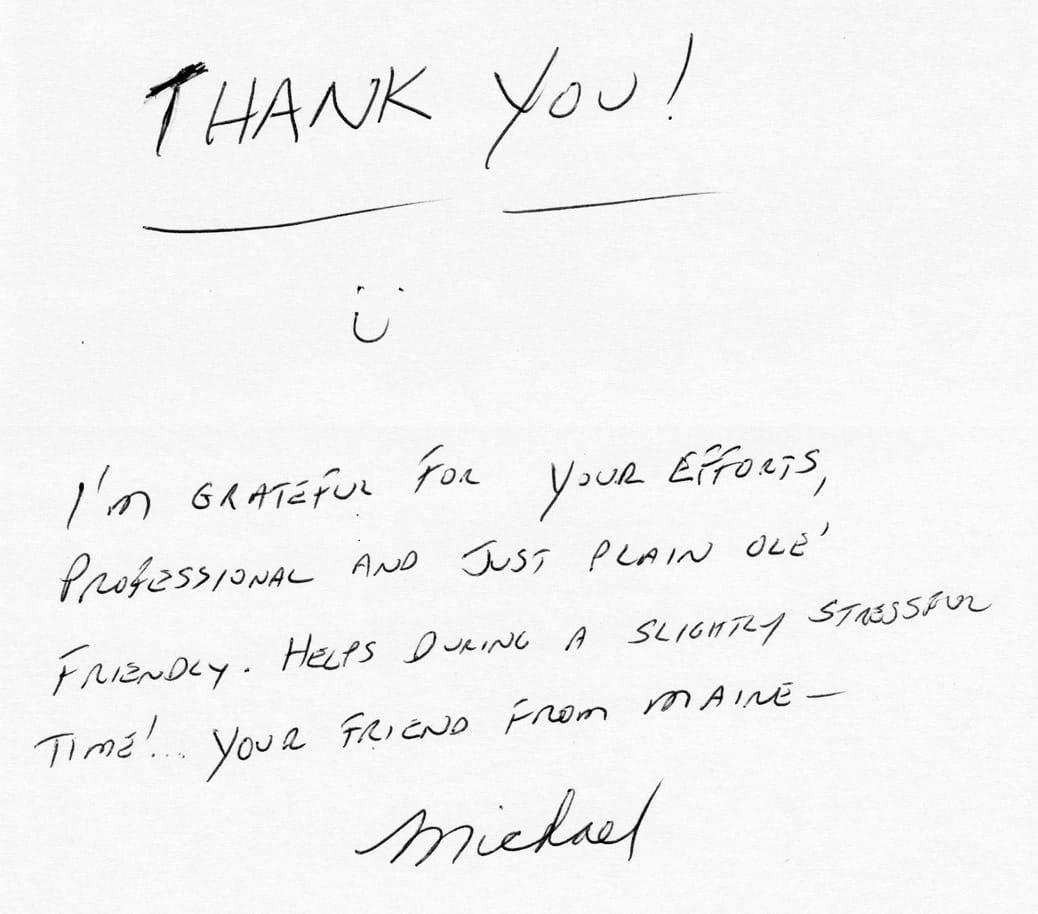 THANK YOU!
I'm GRATEFUL FOR YOUR EFFORTS,
PROFESSIONAL AND JUST PLAIN OLE'
FRIENDLY. HELPS DURING A SLIGHTLY STRESSFUL
TIME!... YOUR FRIEND FROM MAINE—
Michael